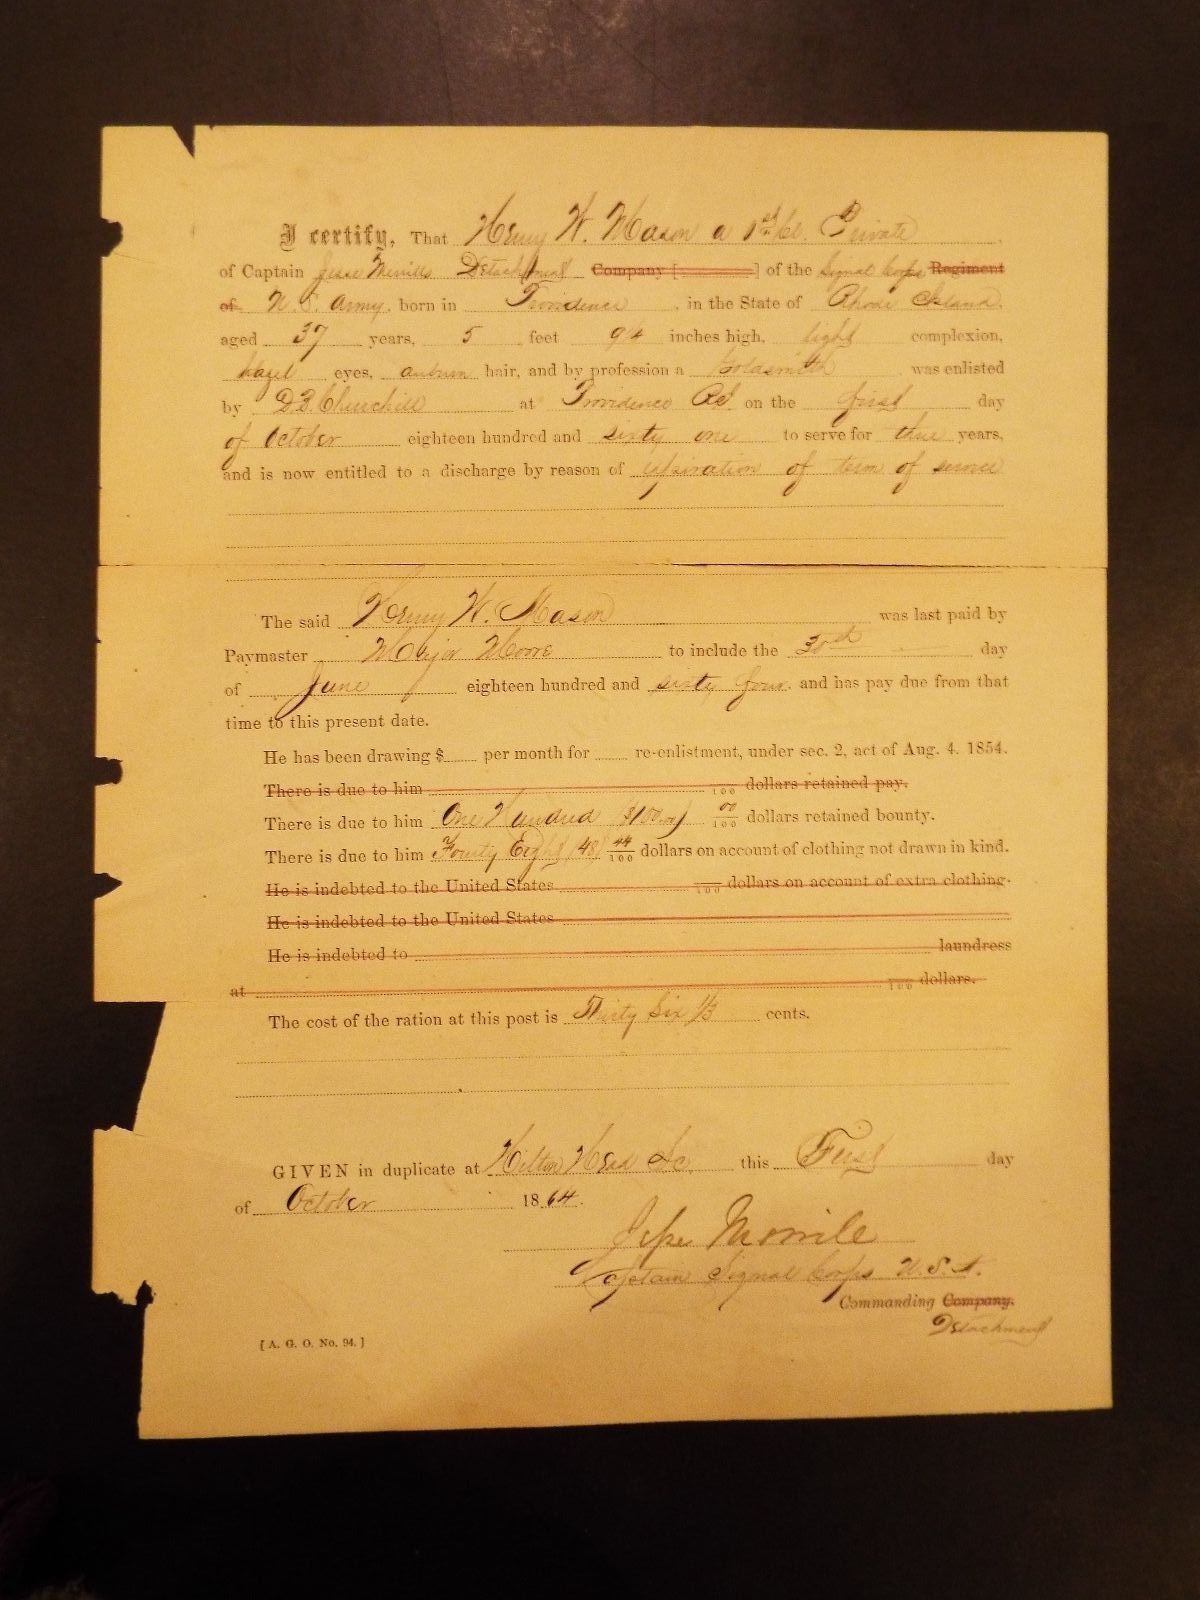 I certify, That Henry W. Mason a 1st Cl. Private
of Captain Jesse Merrills Detachment Company [ ] of the Signal Corps Regiment
of U.S. Army, born in Providence, in the State of Rhode Island,
aged 37 years, 5 feet 9¼ inches high, light complexion,
hazel eyes, auburn hair, and by profession a Goldsmith was enlisted
by D.B. Churchill at Providence R.I. on the first day
of October eighteen hundred and sixty one to serve for three years,
and is now entitled to a discharge by reason of expiration of term of service
The said Henry W. Mason was last paid by
Paymaster Major Moore to include the 30th day
of June eighteen hundred and sixty four, and has pay due from that
time to this present date.
He has been drawing $ per month for re-enlistment, under sec. 2, act of Aug. 4. 1854.
There is due to him /100 dollars retained pay.
There is due to him One Hundred ($100.00) 00/100 dollars retained bounty.
There is due to him Fourty Eight (48) 44/100 dollars on account of clothing not drawn in kind.
He is indebted to the United States /100 dollars on account of extra clothing.
He is indebted to the United States
He is indebted to laundress
at /100 dollars.
The cost of the ration at this post is Thirty Six 1/3 cents.
GIVEN in duplicate at Hilton Head S.C. this First day
of October 1864.
Jesse Merrill
Captain Signal Corps U.S.A.
Commanding Company.
Detachment
[A. G. O. No. 94.]